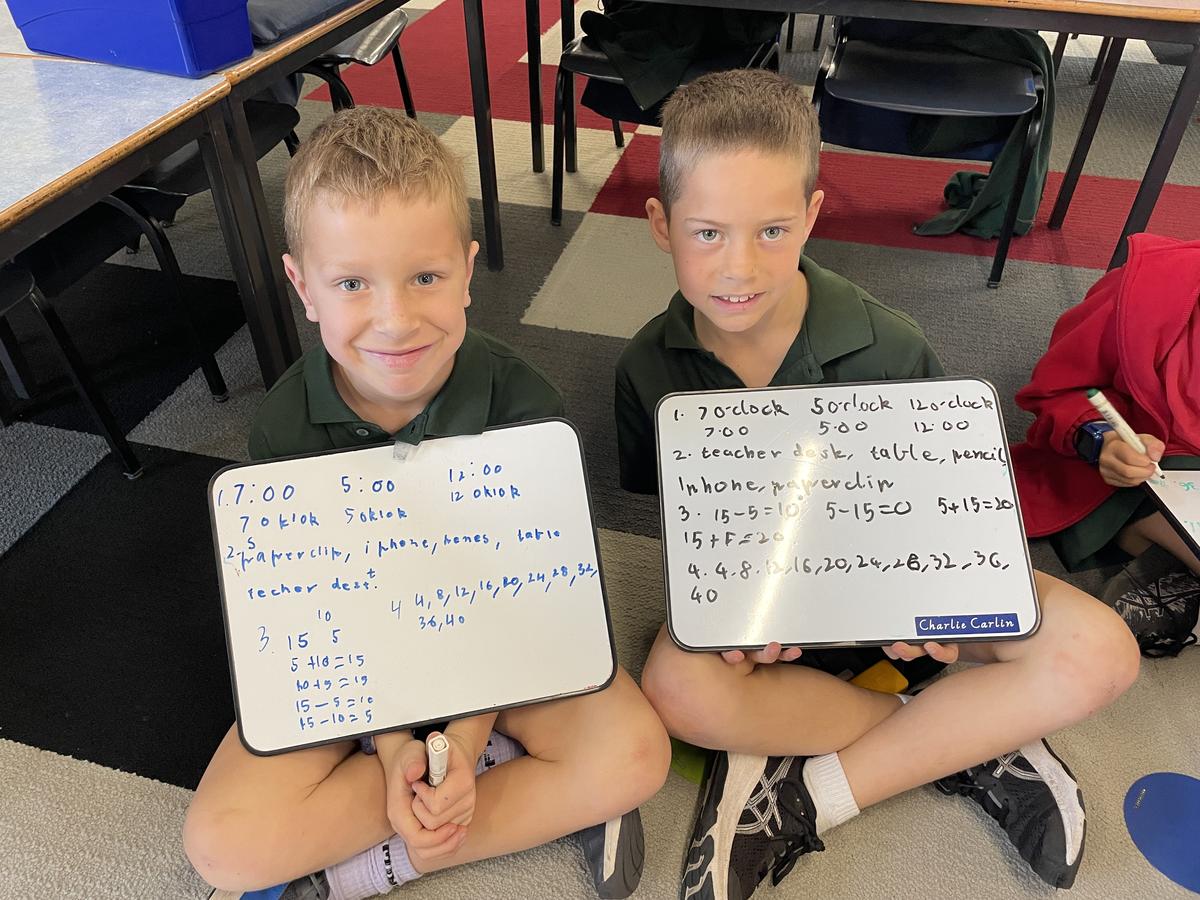 1. 7:00 5:00 12:00
7 oklok 5 oklok 12 oklok
2. paperclip, iphone, table
techer dest.
3. 10
15 5
5 + 10 = 15
15 - 5 = 10
15 - 10 = 5
4 4, 8, 12, 16, 20, 24, 28, 32,
36, 40
1. 7 o-clock 5 o-clock 12 o-clock
7:00 5:00 12:00
2. teacher desk, table, pencil,
Iphone, paperclip
3. 15-5=10 5-15=0 5+15=20
15+F=20
4. 4, 8, 12, 16, 20, 24, 28, 32, 36,
40
Charlie Carlin